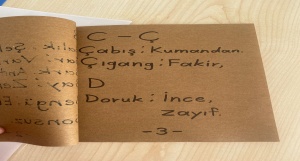 C - Ç
Çabış: Kumandan.
Çıgang: Fakir,
D
Doruk: İnce,
zayıf.
- 3 -